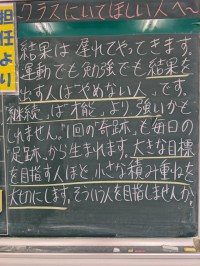 〜クラスにいてほしい人へ〜
担任より
結果は遅れてやってきます。
運動でも勉強でも結果を
出す人は「やめない人」です。
「継続」は「才能」より強いかも
しれません。1回の「奇跡」も毎日の
「足跡」から生まれます。大きな目標
を目指す人ほど小さな積み重ねを
大切にします。そういう人を目指しませんか。